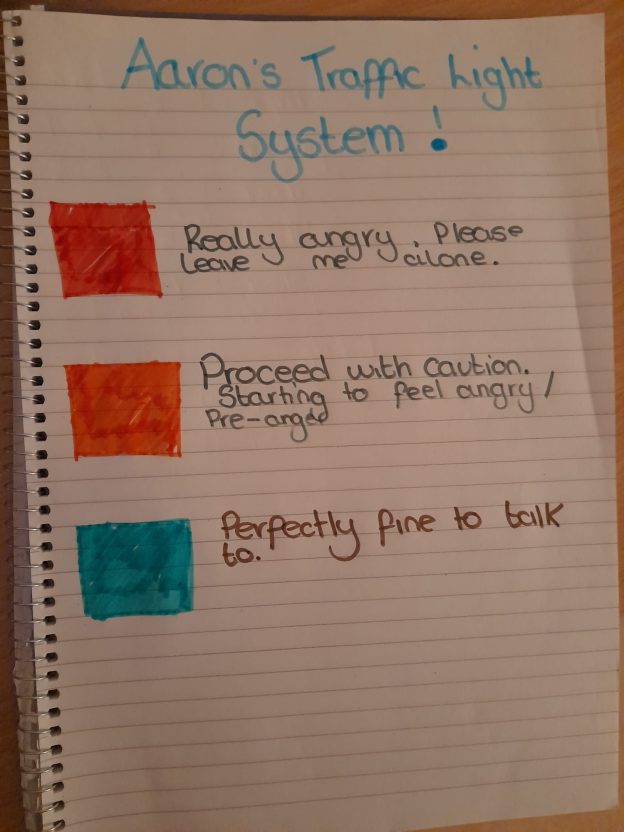 Aaron's Traffic Light
System!
Really angry. Please
leave me alone.
Proceed with caution.
Starting to feel angry/
Pre-anged
Perfectly fine to talk
to.